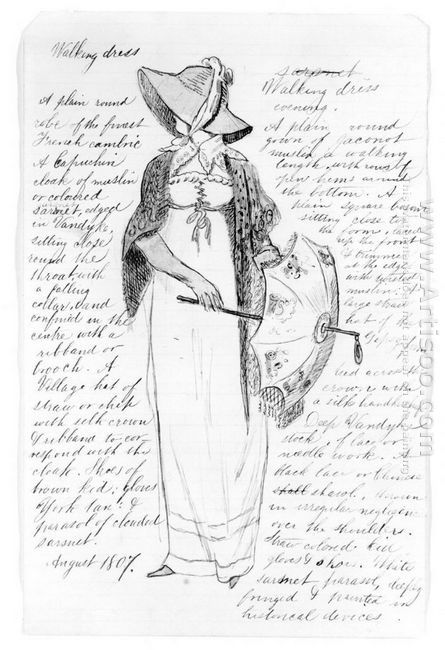 Walking dress
A plain round
robe of the finest
French cambric
A Capuchin
cloak of muslin
or coloured
sarsnet, edged
in Vandyke,
sitting close
round the
throat with
a falling
collar, and
confined in the
centre with a
ribband or
brooch. A
Village hat of
straw or chip
with silk crown
& ribband to cor-
respond with the
cloak. Shoes of
brown kid; gloves
York tan: &
parasol of clouded
sarsnet.
August 1807.
sarsnet
Walking dress
evening.
A plain round
gown of Jaconot
muslin a walking
length with rows of
open hems around
the bottom. A
plain square bosom
sitting close to
the form, laced
up the front
& trimmed
at the edge
with
muslin. A
large straw
hat of the
across the
crown, with
a silk handker
Deep Vandyke
of lace or
needle work. A
black lace or Chinese
shall shawl, thrown
in irregular negligence
over the shoulders.
Straw colored kid
gloves & shoes. White
sarsnet parasol, deeply
fringed & painted in
historical devices.
www.Artisoo.com